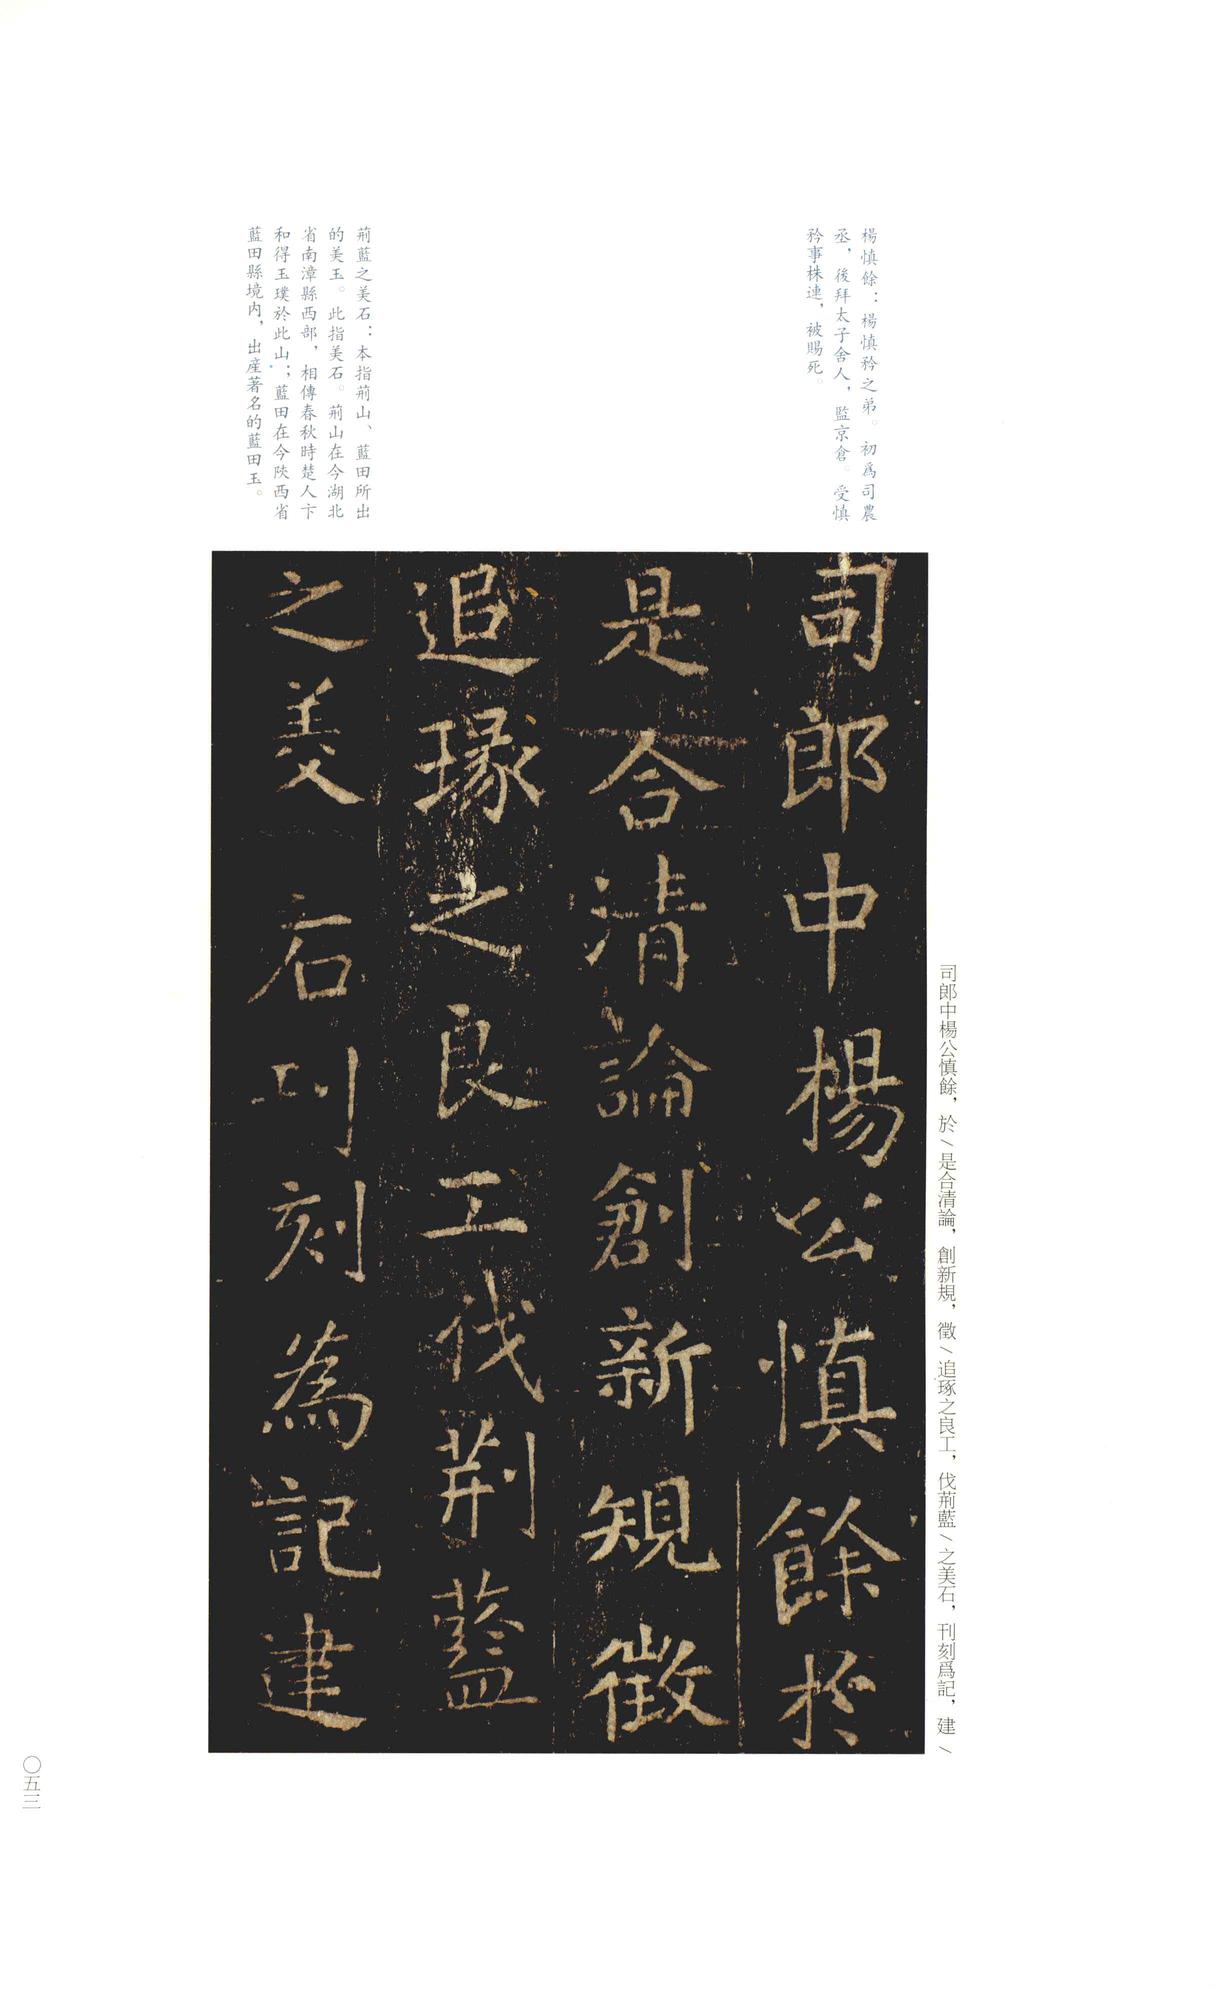 楊慎餘：楊慎矜之弟。初爲司農
丞，後拜太子舍人，監京倉。受慎
矜事株連，被賜死。
荊藍之美石：本指荊山、藍田所出
的美玉。此指美石。荊山在今湖北
省南漳縣西部，相傳春秋時楚人卞
和得玉璞於此山；藍田在今陝西省
藍田縣境内，出産著名的藍田玉。
司郎中楊公慎餘，於\是合清論，創新規，徵\追琢之良工，伐荊藍\之美石，刊刻爲記，建\
司郎中楊公慎餘於
是合清論創新規徵
追琢之良工伐荊藍
之美石刊刻為記建
〇五三